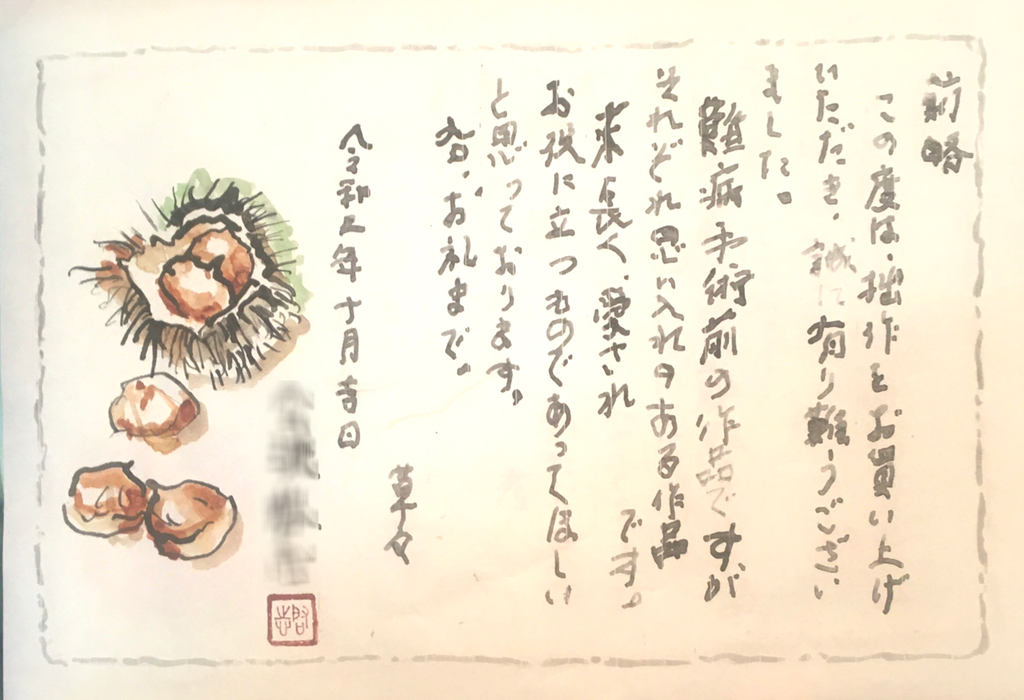 前略
この度は、拙作をお買い上げ
いただき、誠に有り難うござい
ました。
難病手術前の作品ですが
それぞれ思い入れのある作品
です。
末長く、愛され
お役に立つものであってほしい
と思っております。
先ずお礼まで。
草々
令和五年十月吉日